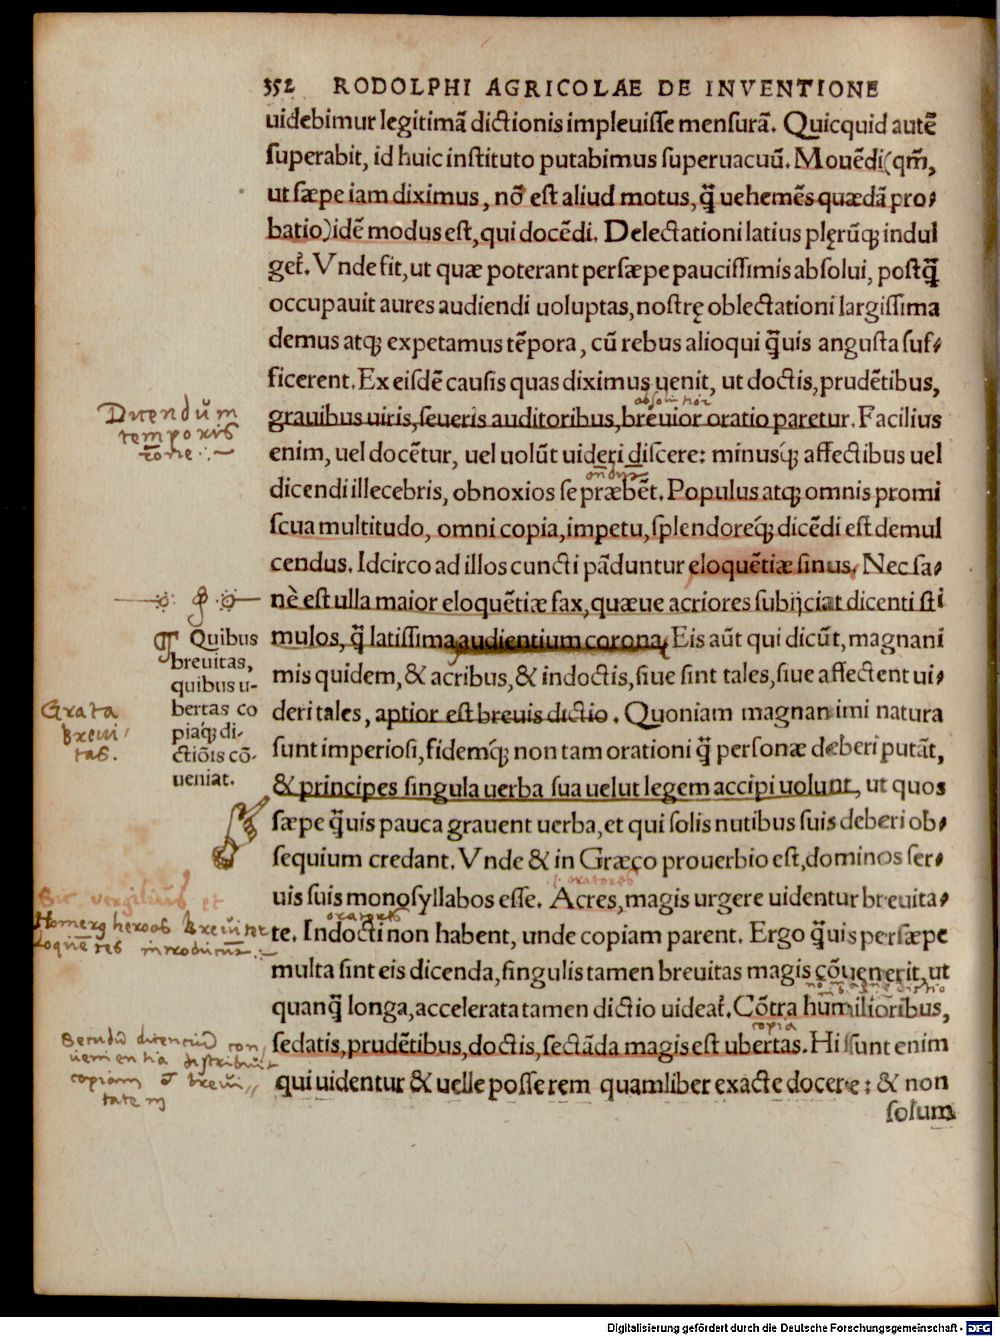 352 RODOLPHI AGRICOLAE DE INVENTIONE
uidebimur legitimã dictionis impleuisse mensurã. Quicquid autẽ
superabit, id huic instituto putabimus superuacuũ. Mouẽdi (qm̃,
ut sæpe iam diximus, nõ est aliud motus, q̃ uehemẽs quædã pro-
batio) idẽ modus est, qui docẽdi. Delectationi latius plęrũq; indul
get̃. Vnde fit, ut quæ poterant persæpe paucissimis absolui, postq̃
occupauit aures audiendi uoluptas, nostrę oblectationi largissima
demus atq; expetamus tẽpora, cũ rebus alioqui q̃uis angusta suf-
ficerent. Ex eisdẽ causis quas diximus uenit, ut doctis, prudẽtibus,
grauibus uiris, seueris auditoribus, breuior oratio paretur. Facilius
enim, uel docẽtur, uel uolũt uideri discere: minusq́; affectibus uel
dicendi illecebris, obnoxios se præbẽt. Populus atq; omnis promi
scua multitudo, omni copia, impetu, splendoreq́; dicẽdi est demul
cendus. Idcirco ad illos cuncti pãduntur eloquẽtiæ sinus. Nec sa-
nè est ulla maior eloquẽtiæ fax, quæue acriores subijciat dicenti sti
mulos, q̃ latissima audientium corona. Eis aũt qui dicũt, magnani
mis quidem, & acribus, & indoctis, siue sint tales, siue affectent ui-
deri tales, aptior est breuis dictio. Quoniam magnanimi natura
sunt imperiosi, fidemq́; non tam orationi q̃ personæ deberi putãt,
& principes singula uerba sua uelut legem accipi uolunt, ut quos
sæpe q̃uis pauca grauent uerba, et qui solis nutibus suis deberi ob-
sequium credant. Vnde & in Græco prouerbio est, dominos ser-
uis suis monosyllabos esse. Acres, magis urgere uidentur breuita-
te. Indocti non habent, unde copiam parent. Ergo q̃uis persæpe
multa sint eis dicenda, singulis tamen breuitas magis cõuenerit, ut
quanq̃ longa, accelerata tamen dictio uideat̃. Cõtra hũmilioribus,
sedatis, prudẽtibus, doctis, sectãda magis est ubertas. Hi sunt enim
qui uidentur & uelle posse rem quamliber exacte docere: & non
solum
Dicendũm
temporis
¶ Quibus
breuitas,
quibus u-
bertas co
piaq́; di-
ctiõis cõ-
ueniat.
Grata
breui-
tas.
Sic vergilius et
copia
Digitalisierung gefördert durch die Deutsche Forschungsgemeinschaft - DFG